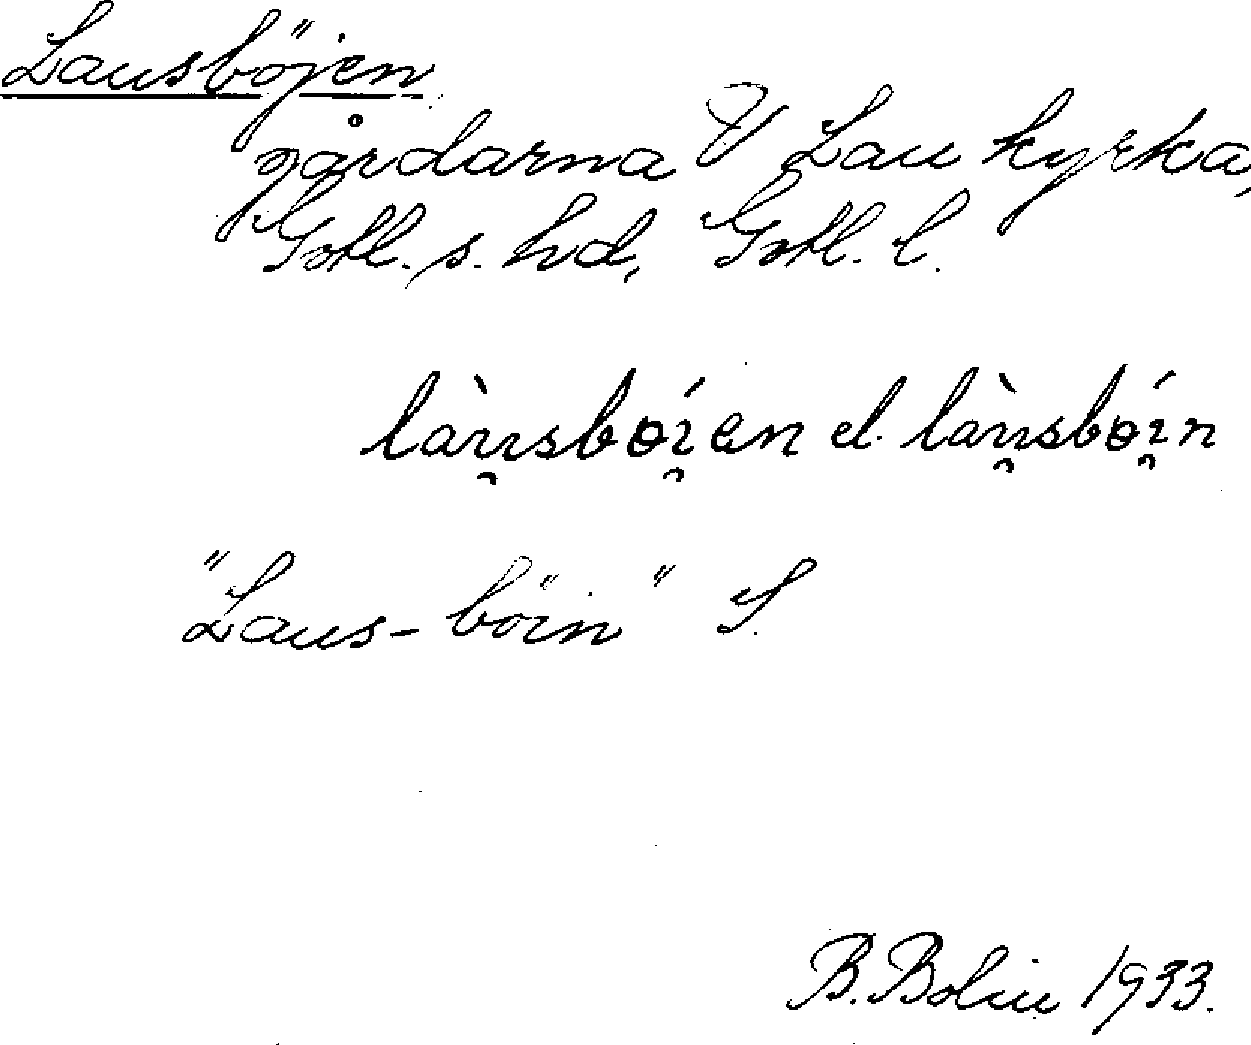 Lausböjen
gårdarna V Lau kyrka,
Gotl. s. hd, Gotl. l.
làu̯sbǿi̯en el. làu̯sbǿi̯n
"Laus-böin" S.
B. Bolin 1933.